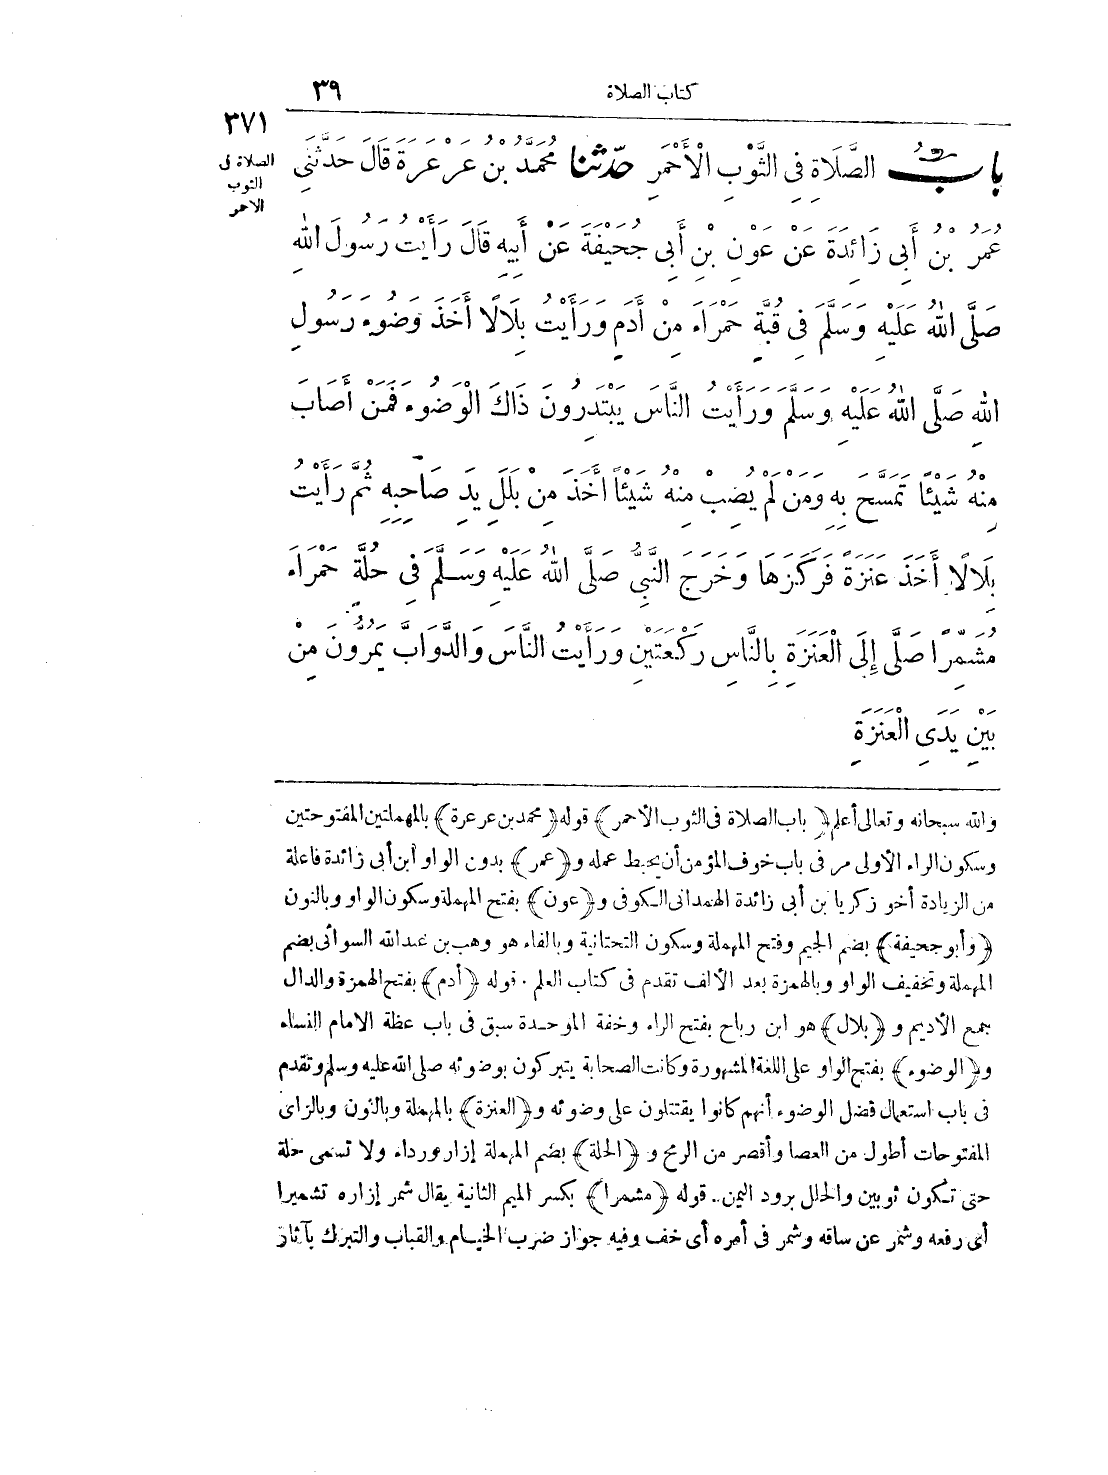 كتاب الصلاة
٣٩
٣٧١
الصلاة فى
الثوب
الاحمر
بابُ الصَّلَاةِ فِي الثَّوْبِ الْأَحْمَرِ حَدَّثَنَا مُحَمَّدُ بْنُ عَرْعَرَةَ قَالَ حَدَّثَنِي
عُمَرُ بْنُ أَبِي زَائِدَةَ عَنْ عَوْنِ بْنِ أَبِي جُحَيْفَةَ عَنْ أَبِيهِ قَالَ رَأَيْتُ رَسُولَ اللهِ
صَلَّى اللهُ عَلَيْهِ وَسَلَّمَ فِى قُبَّةٍ حَمْرَاءَ مِنْ أَدَمٍ وَرَأَيْتُ بِلَالًا أَخَذَ وَضُوءَ رَسُولِ
اللهِ صَلَّى اللهُ عَلَيْهِ وَسَلَّمَ وَرَأَيْتُ النَّاسَ يَبْتَدِرُونَ ذَاكَ الْوَضُوءَ فَمَنْ أَصَابَ
مِنْهُ شَيْئًا تَمَسَّحَ بِهِ وَمَنْ لَمْ يُصِبْ مِنْهُ شَيْئًا أَخَذَ مِنْ بَلَلِ يَدِ صَاحِبِهِ ثُمَّ رَأَيْتُ
بِلَالًا أَخَذَ عَنَزَةً فَرَكَزَهَا وَخَرَجَ النَّبِىُّ صَلَّى اللهُ عَلَيْهِ وَسَلَّمَ فِى حُلَّةٍ حَمْرَاءَ
مُشَمِّرًا صَلَّى إِلَى الْعَنَزَةِ بِالنَّاسِ رَكْعَتَيْنِ وَرَأَيْتُ النَّاسَ وَالدَّوَابَّ يَمُرُّونَ مِنْ
بَيْنِ يَدَىِ الْعَنَزَةِ
والله سبحانه وتعالى أعلم ﴿باب الصلاة فى الثوب الأحمر﴾ قوله ﴿محمد بن عرعرة﴾ بالمهملتين المفتوحتين
وسكون الراء الأولى مر فى باب خوف المؤمن أن يحبط عمله و﴿عمر﴾ بدون الواو ابن أبى زائدة فاعلة
من الزيادة أخو زكريا بن أبى زائدة الهمدانى الكوفى و﴿عون﴾ بفتح المهملة وسكون الواو وبالنون
﴿وأبو جحيفة﴾ بضم الجيم وفتح المهملة وسكون التحتانية وبالفاء هو وهب بن عبدالله السوائى بضم
المهملة وتخفيف الواو وبالهمزة بعد الألف تقدم فى كتاب العلم . قوله ﴿أدم﴾ بفتح الهمزة والدال
جمع الأديم و ﴿بلال﴾ هو ابن رباح بفتح الراء وخفة الموحدة سبق فى باب عظة الامام النساء
و﴿الوضوء﴾ بفتح الواو على اللغة المشهورة وكانت الصحابة يتبركون بوضوئه صلى الله عليه وسلم وتقدم
فى باب استعمال فضل الوضوء أنهم كانوا يقتتلون على وضوئه و﴿العنزة﴾ بالمهملة وبالنون وبالزاى
المفتوحات أطول من العصا وأقصر من الرمح و ﴿الحلة﴾ بضم المهملة إزار ورداء ولا تسمى حلة
حتى تكون ثوبين والحلل برود اليمن . قوله ﴿مشمرا﴾ بكسر الميم الثانية يقال شمر إزاره تشميرا
أى رفعه وشمر عن ساقه وشمر فى أمره أى خف وفيه جواز ضرب الخيام والقباب والتبرك بآثار